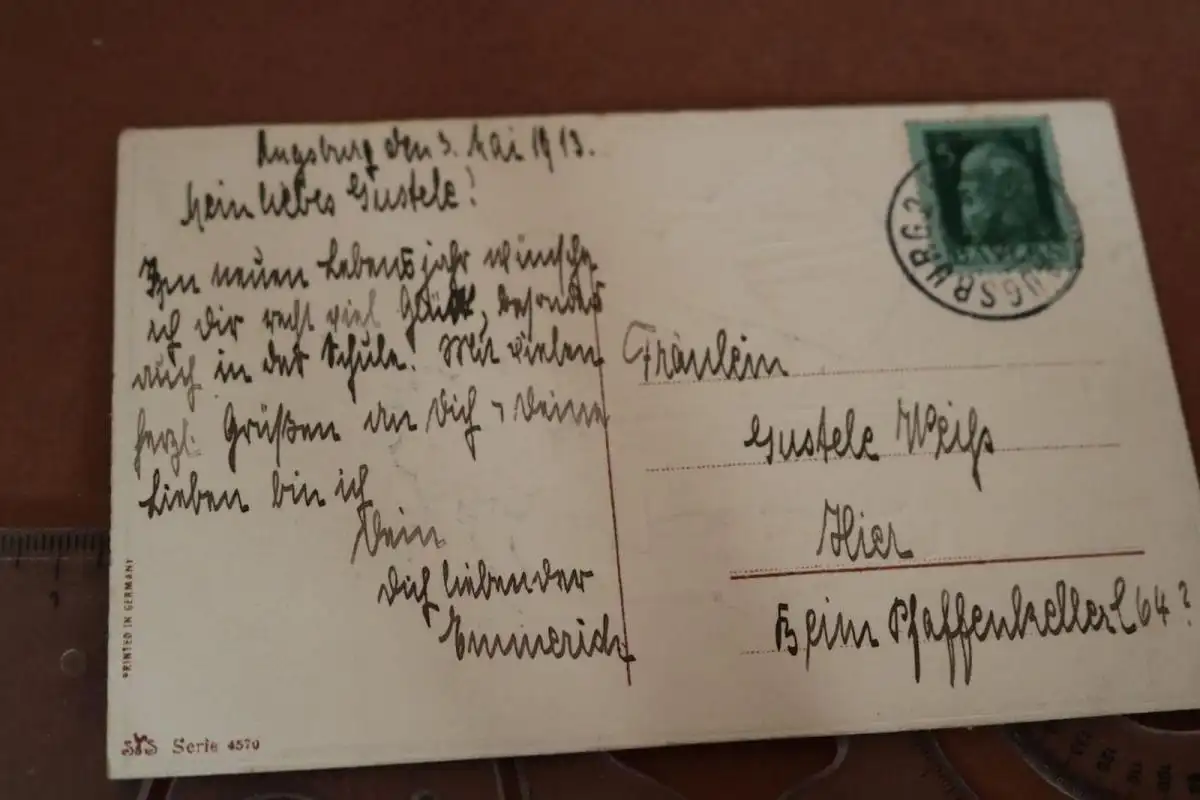 Augsburg den 3. Mai 1913.
Mein liebes Gustele!
Im neuen Lebensjahr wünsche
ich dir recht viel Glück, besonders
auch in der Schule. Mit vielen
herzl. Grüßen an Dich u. Deine
Lieben bin ich
Dein
dich liebender
Emmerich
Fräulein
Gustele Weiß
Hier
Beim Pfaffenkellerl 64
PRINTED IN GERMANY
Serie 4570
5
BAYERN
AUGSBURG. 2